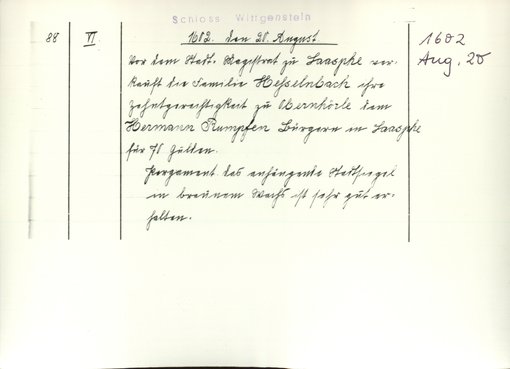 Schloss Wittgenstein
88 VI 1602. den 20. August
1602
Aug. 20
Vor dem Stadt-Magistrat zu Laasphe ver-
kauft die Familie Hesselnbach ihre
Zehntgerechtigkeit zu Obernhörle dem
Hermann Rumpfen Bürgern in Laasphe
für 70 Gulden.
Pergament das anhängende Stadtsiegel
in braunem Wachs ist sehr gut er-
halten.